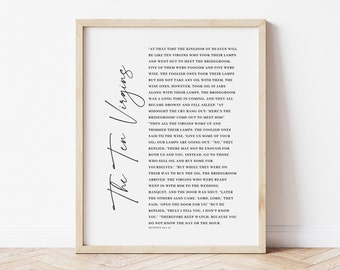 The Ten Virgins
"AT THAT TIME THE KINGDOM OF HEAVEN WILL
BE LIKE TEN VIRGINS WHO TOOK THEIR LAMPS
AND WENT OUT TO MEET THE BRIDEGROOM.
FIVE OF THEM WERE FOOLISH AND FIVE WERE
WISE. THE FOOLISH ONES TOOK THEIR LAMPS
BUT DID NOT TAKE ANY OIL WITH THEM. THE
WISE ONES, HOWEVER, TOOK OIL IN JARS
ALONG WITH THEIR LAMPS. THE BRIDEGROOM
WAS A LONG TIME IN COMING, AND THEY ALL
BECAME DROWSY AND FELL ASLEEP. "AT
MIDNIGHT THE CRY RANG OUT: 'HERE'S THE
BRIDEGROOM! COME OUT TO MEET HIM!'
"THEN ALL THE VIRGINS WOKE UP AND
TRIMMED THEIR LAMPS. THE FOOLISH ONES
SAID TO THE WISE, 'GIVE US SOME OF YOUR
OIL; OUR LAMPS ARE GOING OUT.' "'NO,' THEY
REPLIED, 'THERE MAY NOT BE ENOUGH FOR
BOTH US AND YOU. INSTEAD, GO TO THOSE
WHO SELL OIL AND BUY SOME FOR
YOURSELVES.' "BUT WHILE THEY WERE ON
THEIR WAY TO BUY THE OIL, THE BRIDEGROOM
ARRIVED. THE VIRGINS WHO WERE READY
WENT IN WITH HIM TO THE WEDDING
BANQUET. AND THE DOOR WAS SHUT. "LATER
THE OTHERS ALSO CAME. 'LORD, LORD,' THEY
SAID, 'OPEN THE DOOR FOR US!' "BUT HE
REPLIED, 'TRULY I TELL YOU, I DON'T KNOW
YOU.' "THEREFORE KEEP WATCH, BECAUSE YOU
DO NOT KNOW THE DAY OR THE HOUR.